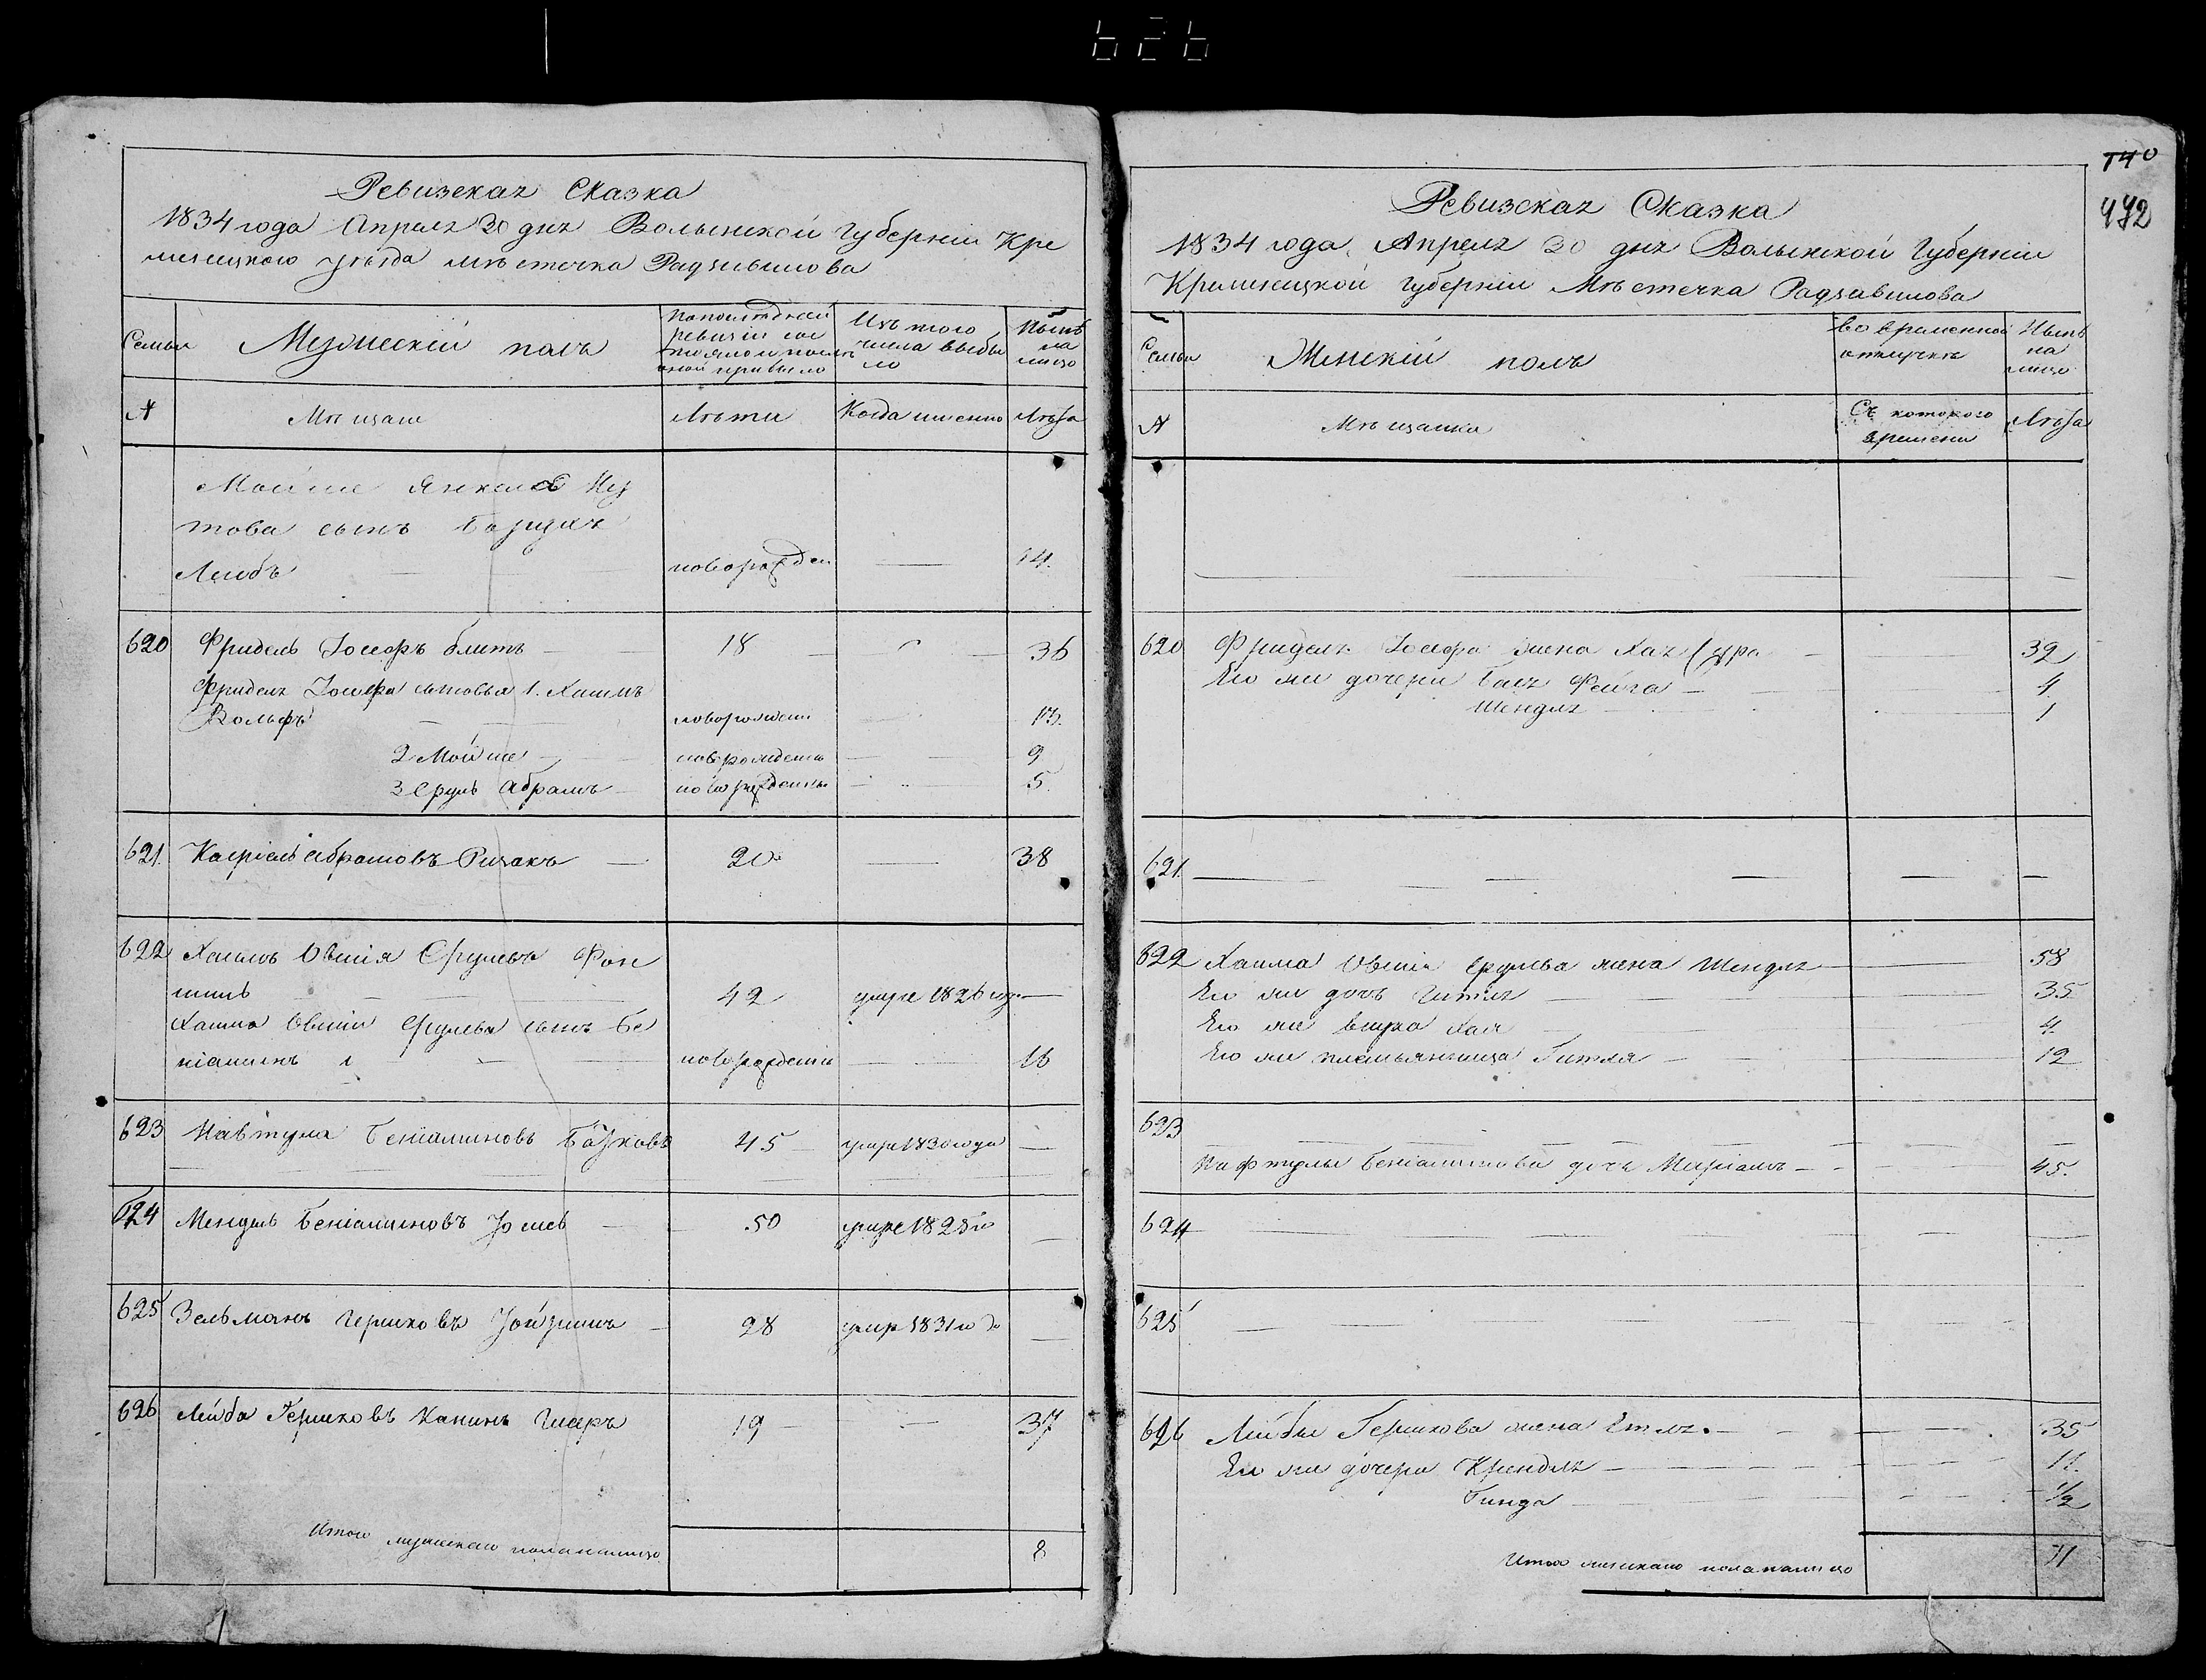 626
Ревизская Сказка
1834 года Апреля 30 дня Волынской Губернии Кре
менецкого уѣзда мѣстечка Радзивилова
Семьи
Мужескій полъ
По последней
ревизіи со
стояло и после
оной прибыло
Изъ того
числа выбы
ло
Нынѣ
на
лицо
№
Мѣщане
Лѣта
Когда именно
Лѣта
Мойше Янкель
това сынъ
Лейбъ новорожден 14.
620 Фридель Іосефъ блитъ 18 36
Фриделя Іосефа сыновья 1. Хаимъ
Вольфъ новорожден 13.
2 Мойше новорожденъ 9
3 Сруль Абрамъ новорожденны 5.
621. Касріель Абрамовъ Ризакъ 20 38
622 Хаимъ Овшія Срулевъ Фон
42 умре 1826 год.
Хаима Овшіи Срулева сынъ Бе
ніаминъ 1 новорожденъ 16
623 Навтула Беніаминовъ 45 умре 1830 года
624 Мендель Беніаминовъ 50 умре 1825 го
625 Зельманъ Гершковъ 28 умре 1831 го
626 Лейба Гершковъ 19 37
Итого мужескаго пола на лицо 8
140
472
Ревизская Сказка
1834 года Апреля 30 дня Волынской Губерніи
Кременецкой Губерніи Мѣстечка Радзивилова
Семьи
Женскій полъ
Во временной
отлучкѣ
Нынѣ
на
лицо
№
Мѣщанка
Съ которого
времени
Лѣта
620 Фриделя Іосефа жена Хая Сура 32
Его же дочери Бася Фейга 4
Шендля 1
621.
622 Хаима Овшіи Срулева жена Шендля 58
Его же дочь Гитля 35
Его же внука Хая 4
Его же племьянница Гитля 12
623
Нафтулы Беніаминова дочь Маріамъ 45.
624
625
626 Лейбы Гершкова жена Етля. 35
Его же дочери Крендля 11.
Гинда 1/2
Итого женскаго пола на лицо 11